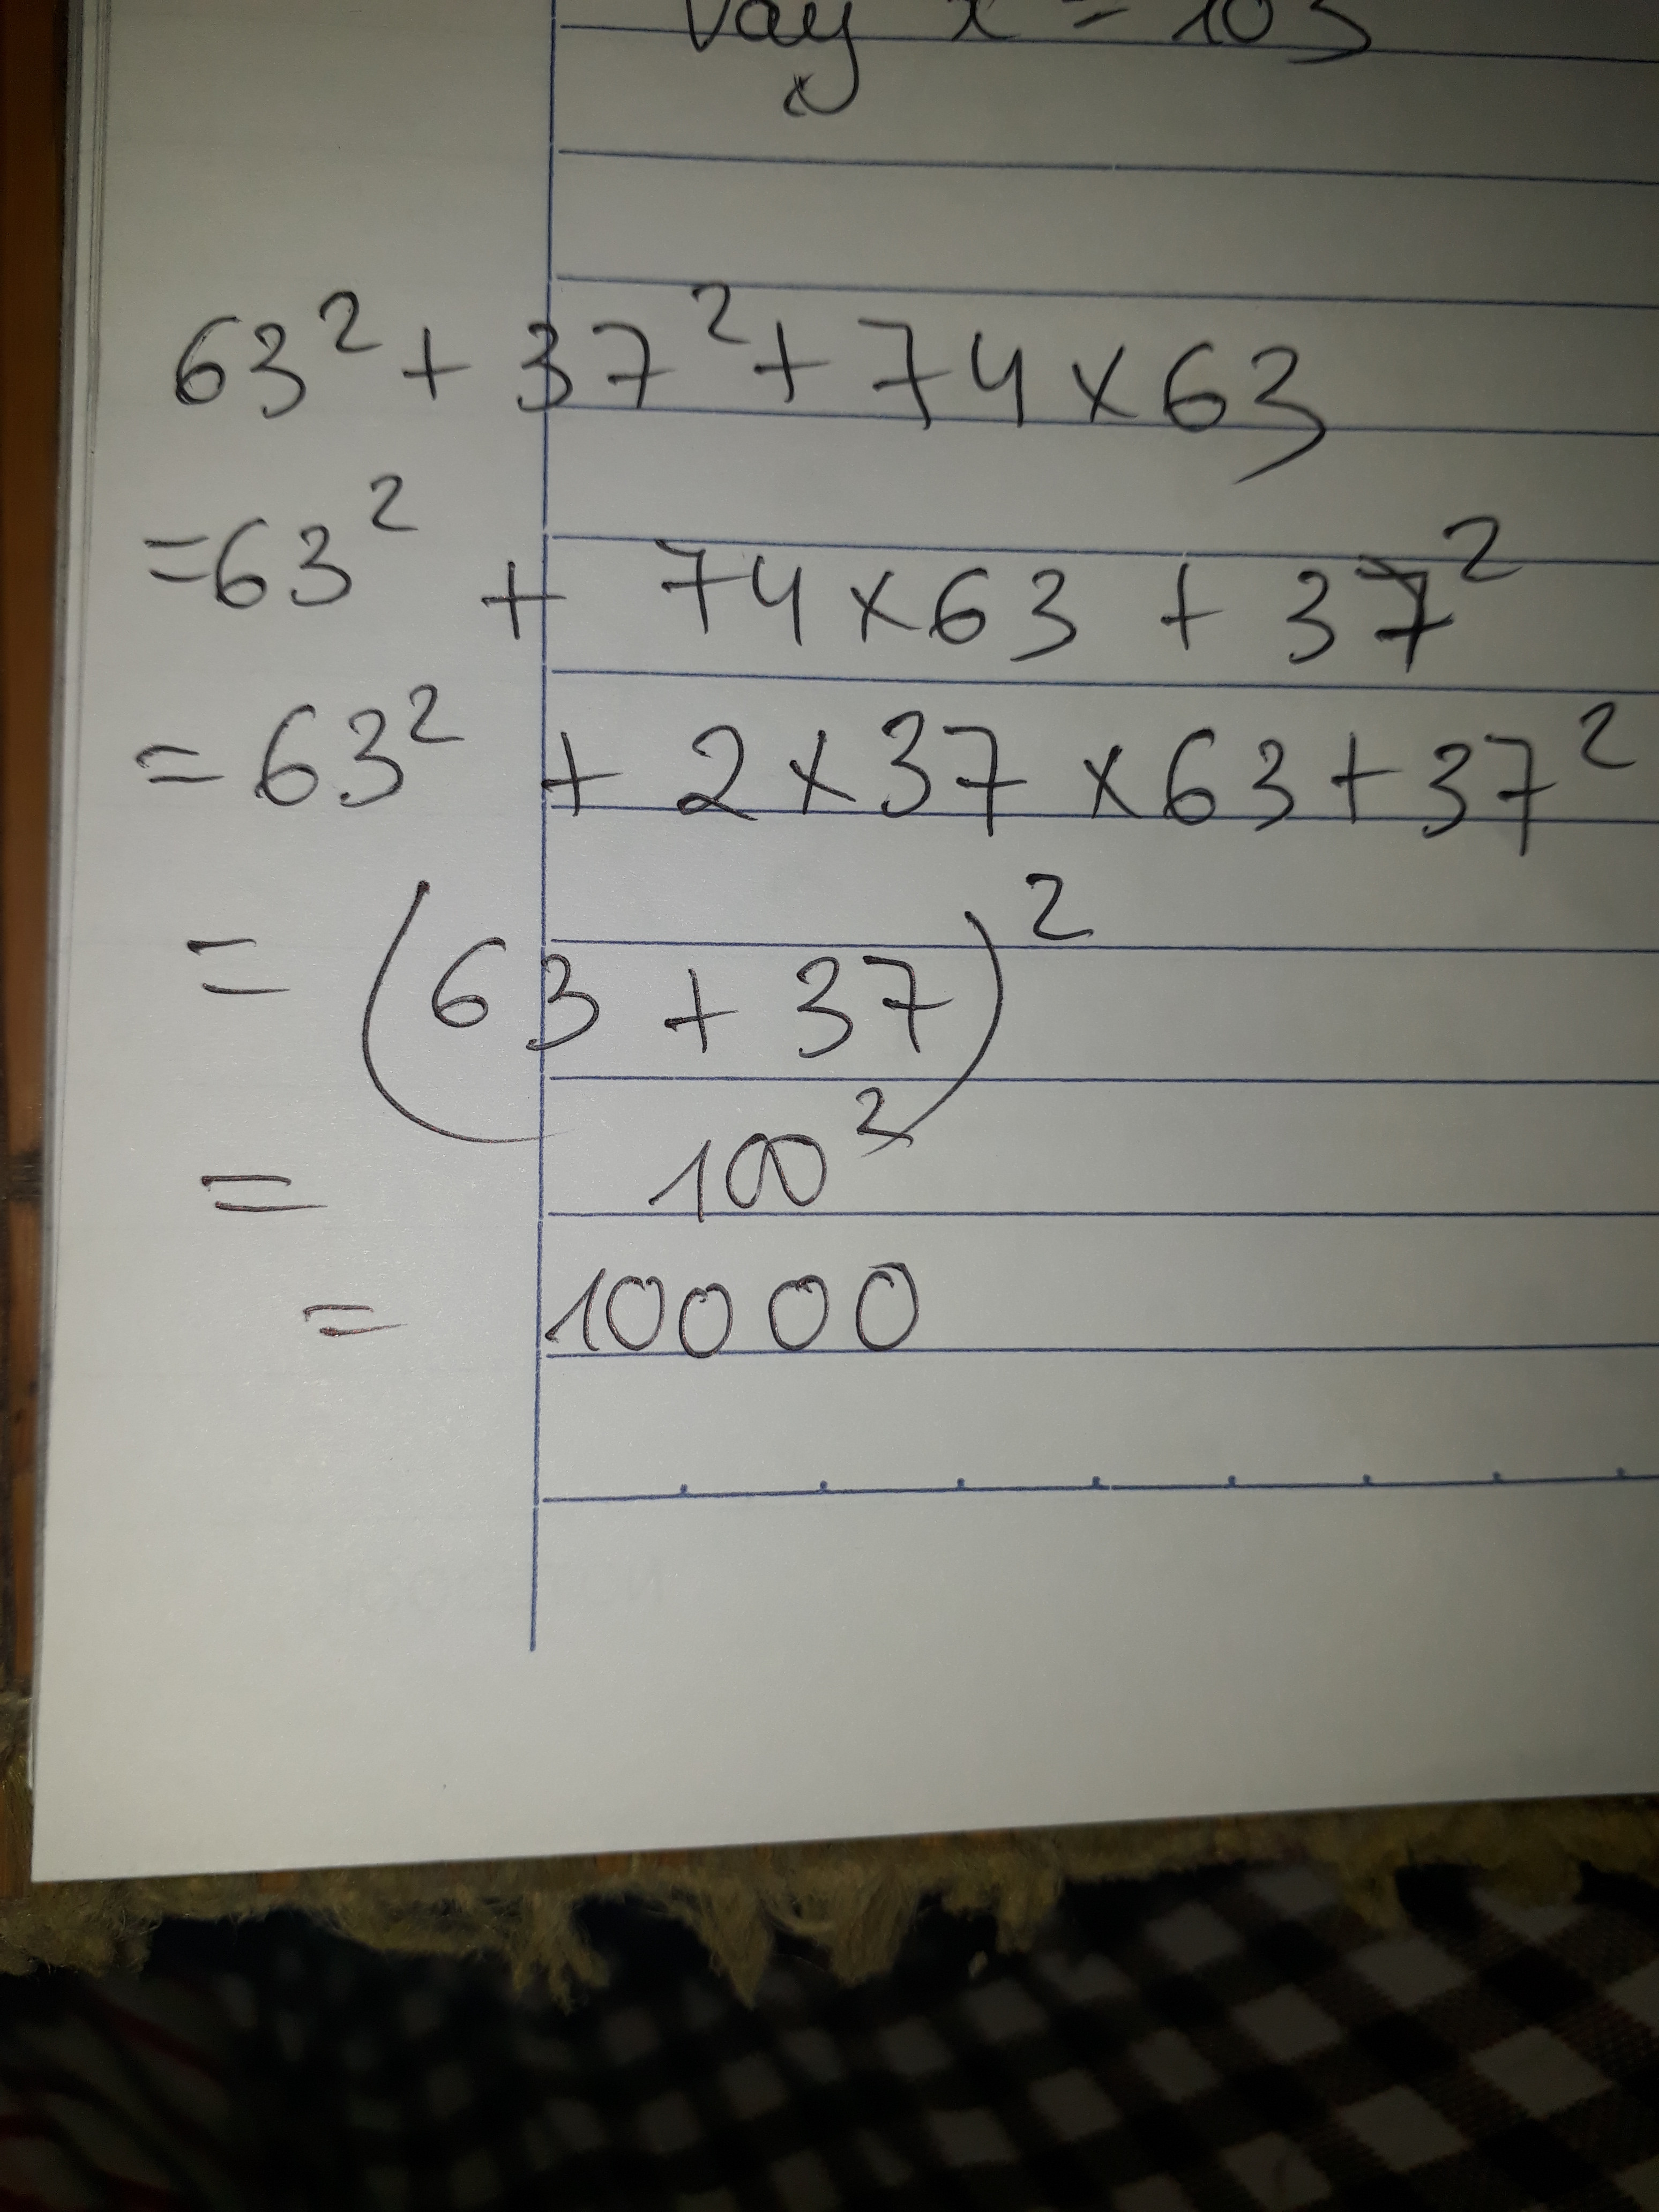 Vậy x = 103
63² + 37² + 74 × 63
= 63² + 74 × 63 + 37²
= 63² + 2 × 37 × 63 + 37²
= (63 + 37)²
= 100²
= 10000